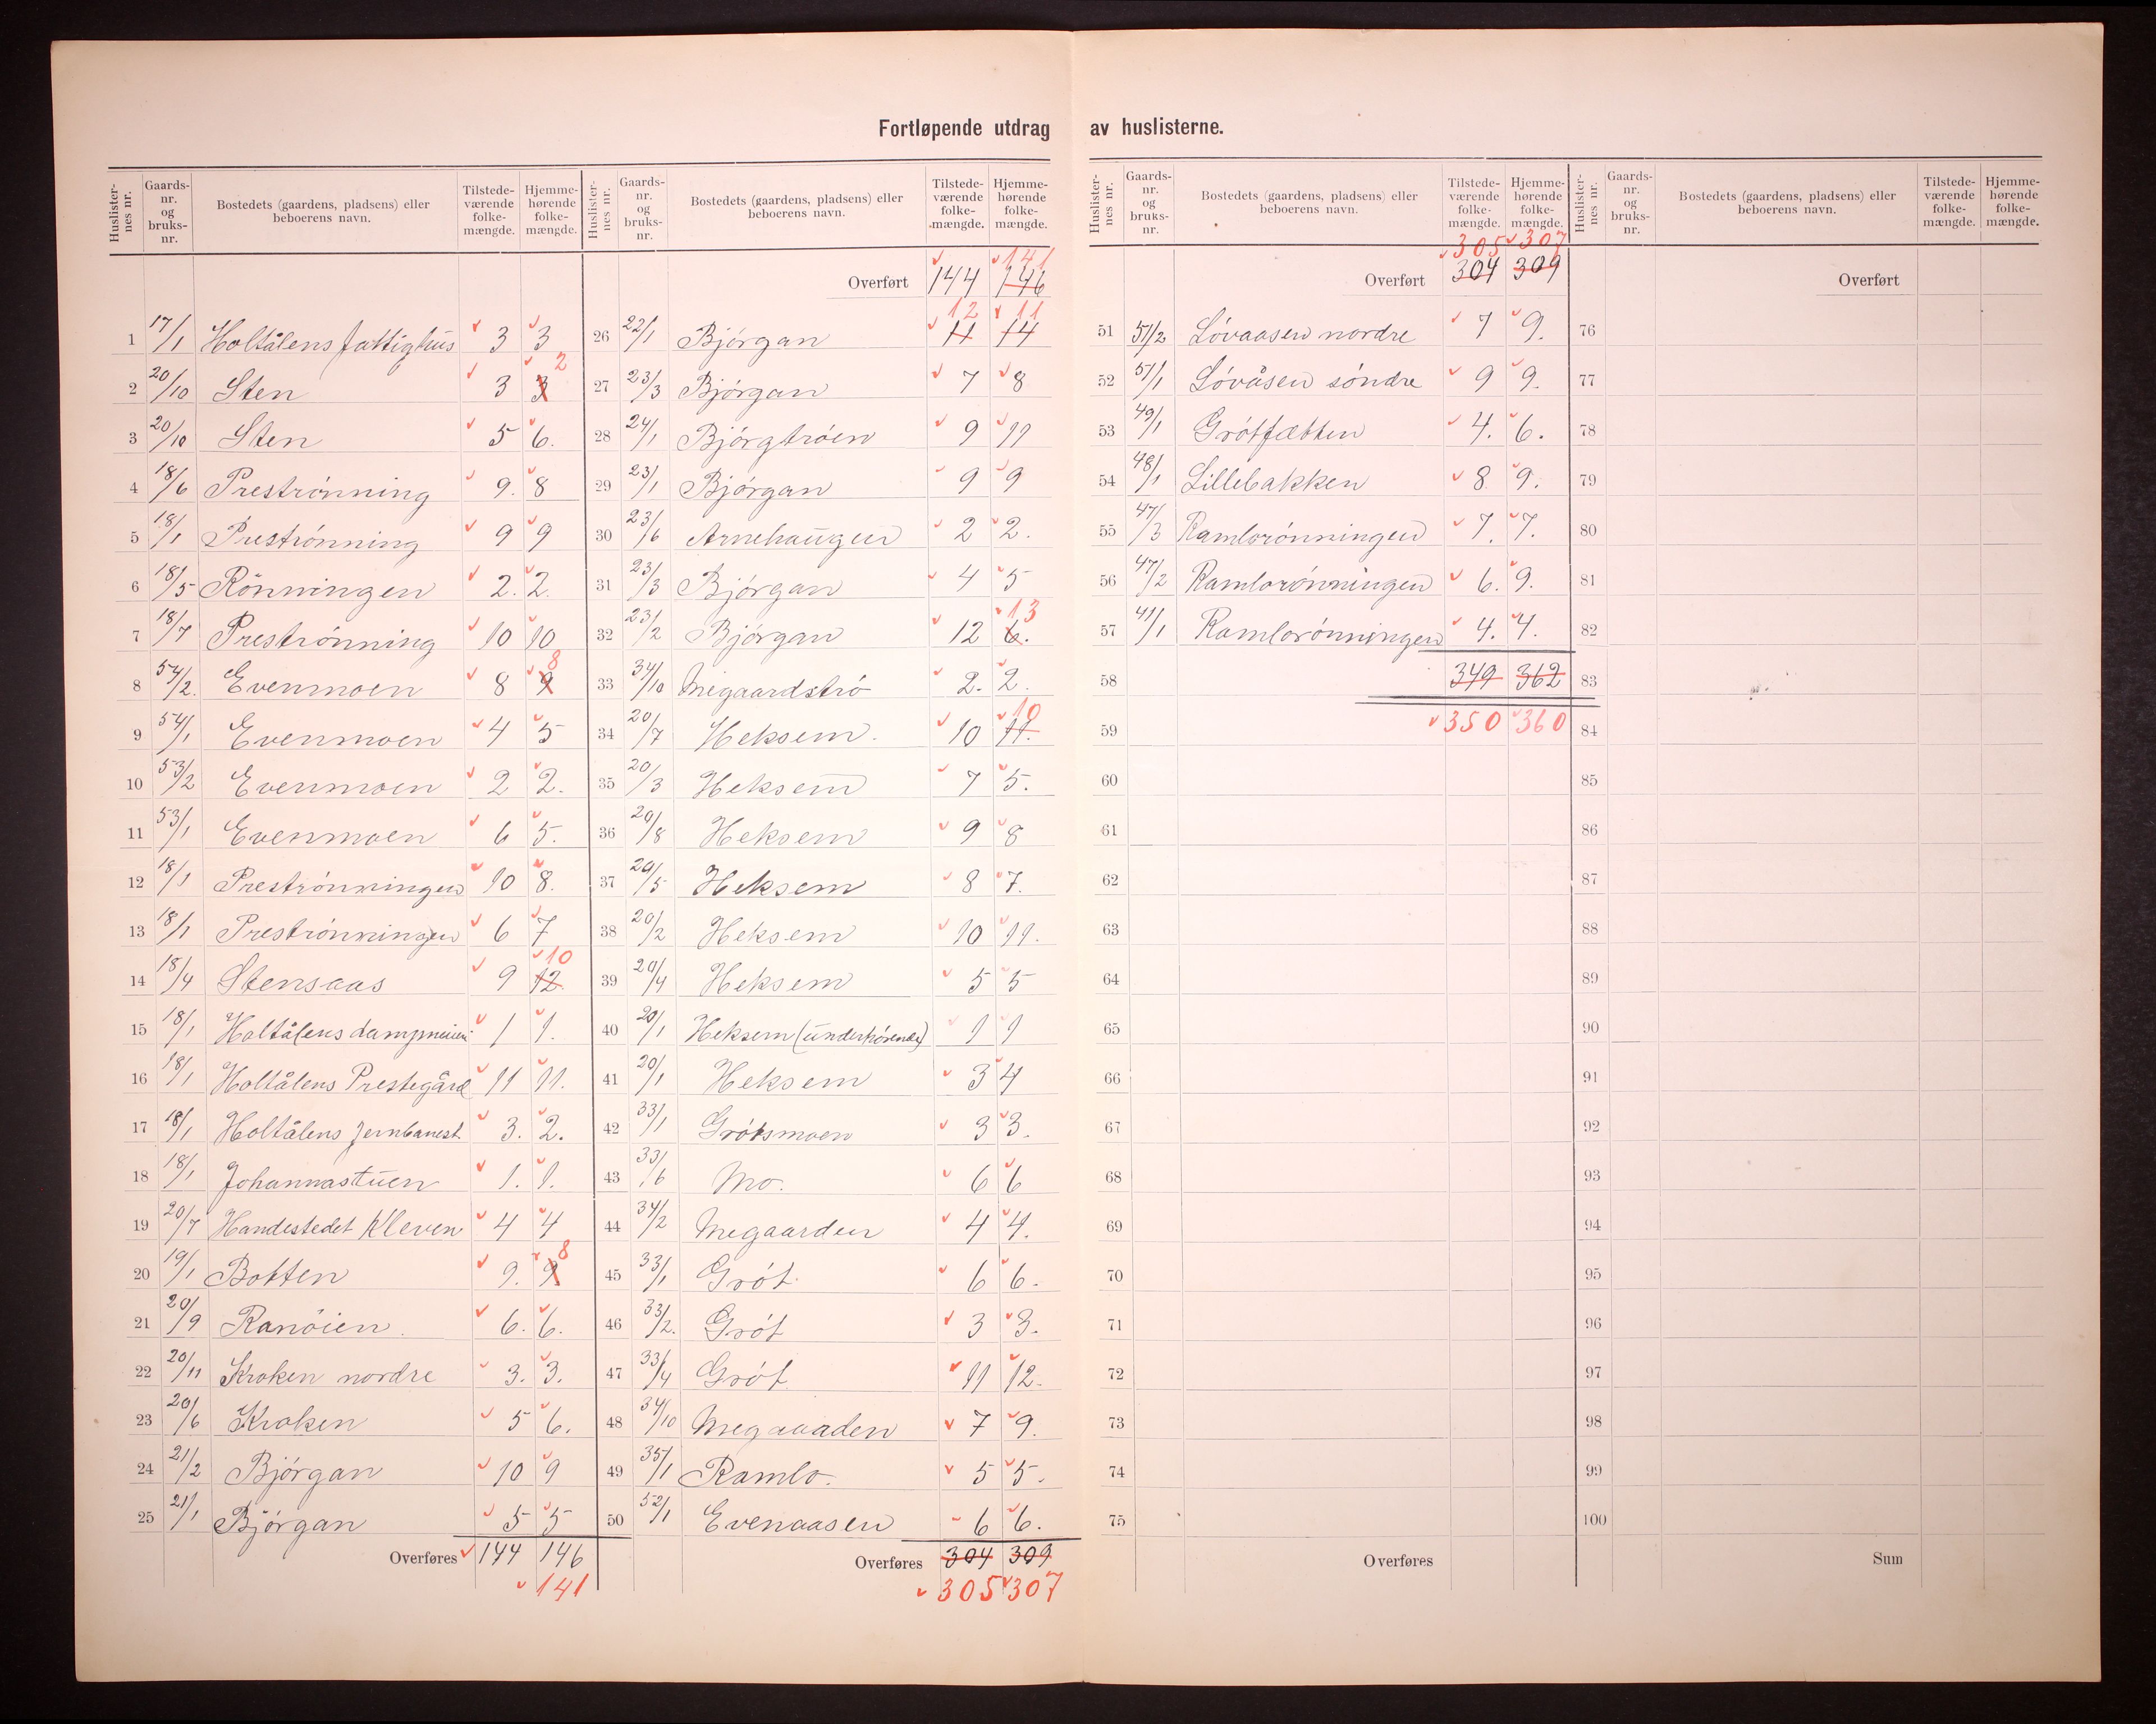 Fortløpende utdrag av huslisterne.
Huslisternes nr. Gaards-nr. og bruks-nr. Bostedets (gaardens, pladsens) eller beboerens navn. Tilstede-værende folke-mængde. Hjemme-hørende folke-mængde.
1 17/1 Holtålens fattighus 3 3
2 20/10 Sten 3 3 2
3 20/10 Sten 5 6.
4 18/6 Prestrønning 9. 8
5 18/1 Prestrønning 9 9
6 18/5 Rönningen 2. 2.
7 18/7 Prestrønning 10 10
8 54/2. Evenmoen 8 9 8
9 54/1 Evenmoen 4 5
10 53/2 Evenmoen 2 2.
11 53/1 Evenmoen 6 5.
12 18/1 Prestrønningen 10 8.
13 18/1 Prestrønningen 6 7
14 18/4 Stensaas 9 12. 10
15 18/1 Holtålens dampmeieri 1 1.
16 18/1 Holtålens Prestegård 11 11.
17 18/1 Holtålens Jernbanest. 3. 2.
18 18/1 Johannastuen 1. 1.
19 20/7 Handestedet Kleven 4 4
20 19/1 Botten 9. 9. 8
21 20/9 Ranöien. 6. 6.
22 20/11 Kroken nordre 3. 3.
23 20/6 Kroken 5 6.
24 21/2 Bjórgan 10 9
25 21/1 Bjórgan 5 5
Overføres 144 146
141
Huslisternes nr. Gaards-nr. og bruks-nr. Bostedets (gaardens, pladsens) eller beboerens navn. Tilstede-værende folke-mængde. Hjemme-hørende folke-mængde.
Overført 144 146 141
26 22/1 Bjórgan 11 12 14 11
27 23/3 Bjórgan 7 8
28 24/1 Bjórgtróen 9 11
29 23/1 Bjórgan 9 9
30 23/6 Arnehaugen 2 2.
31 23/3 Bjórgan 4 5
32 23/2 Bjórgan 12 6. 13
33 34/10 Megaardstró 2. 2.
34 20/7 Heksem. 10 11. 10
35 20/3 Heksem 7 5.
36 20/8 Heksem 9 8
37 20/5 Heksem 8 7.
38 20/2 Heksem 10 11.
39 20/4 Heksem 5 5
40 20/1 Heksem (underhørende) 1 1
41 20/1 Heksem 3 4
42 33/1 Grótsmoen 3 3.
43 33/6 Mo. 6 6
44 34/2 Megaarden 4 4.
45 33/1 Grót. 6 6.
46 33/2. Grót 3 3.
47 33/4 Grót 11 12.
48 34/10 Megaarden 7 9.
49 35/1 Ramlo. 5 5.
50 52/1 Evenaasen 6 6.
Overføres 304 309
305 307
Huslisternes nr. Gaards-nr. og bruks-nr. Bostedets (gaardens, pladsens) eller beboerens navn. Tilstede-værende folke-mængde. Hjemme-hørende folke-mængde.
305 307
Overført 304 309
51 51/2 Lóvaasen nordre 7 9.
52 51/1 Lóvåsen sóndre 9 9.
53 49/1 Grótfætten 4. 6.
54 48/1 Lillebakken 8 9.
55 47/3 Ramlorónningen 7. 7.
56 47/2 Ramlorónningen 6. 9.
57 41/1 Ramlorónningen 4. 4.
58 349 362
59 350 360
60
61
62
63
64
65
66
67
68
69
70
71
72
73
74
75
Overføres
Huslisternes nr. Gaards-nr. og bruks-nr. Bostedets (gaardens, pladsens) eller beboerens navn. Tilstede-værende folke-mængde. Hjemme-hørende folke-mængde.
Overført
76
77
78
79
80
81
82
83
84
85
86
87
88
89
90
91
92
93
94
95
96
97
98
99
100
Sum